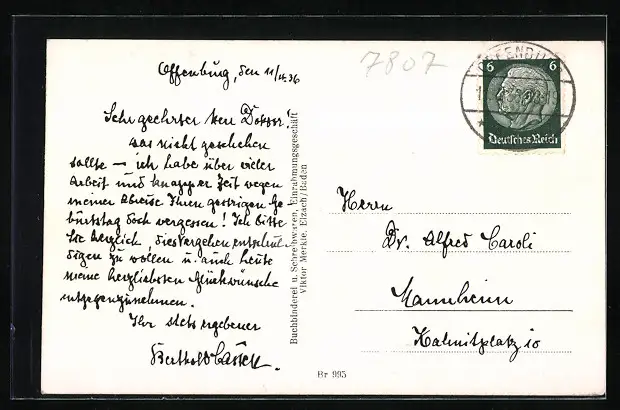 Offenburg, den 11/4.36
Sehr geehrter Herr Doktor!
was nicht geschehen
sollte – ich habe über vieler
Arbeit und knapper Zeit wegen
meiner Abreise Ihren gestrigen Ge-
burtstag doch vergessen! Ich bitte
Sie herzlich, dies Vergehen entschul-
digen zu wollen u. auch heute
meine herzlichsten Glückwünsche
entgegenzunehmen.
Ihr stets ergebener
Berthold
Buchbinderei u. Schreibwaren, Einrahmungsgeschäft
Viktor Merkle, Elzach/Baden
Br 995
7807
OFFENBURG
6 6
Deutsches Reich
Herrn
Dr. Alfred Caroli
Mannheim
Kalmitplatz 10